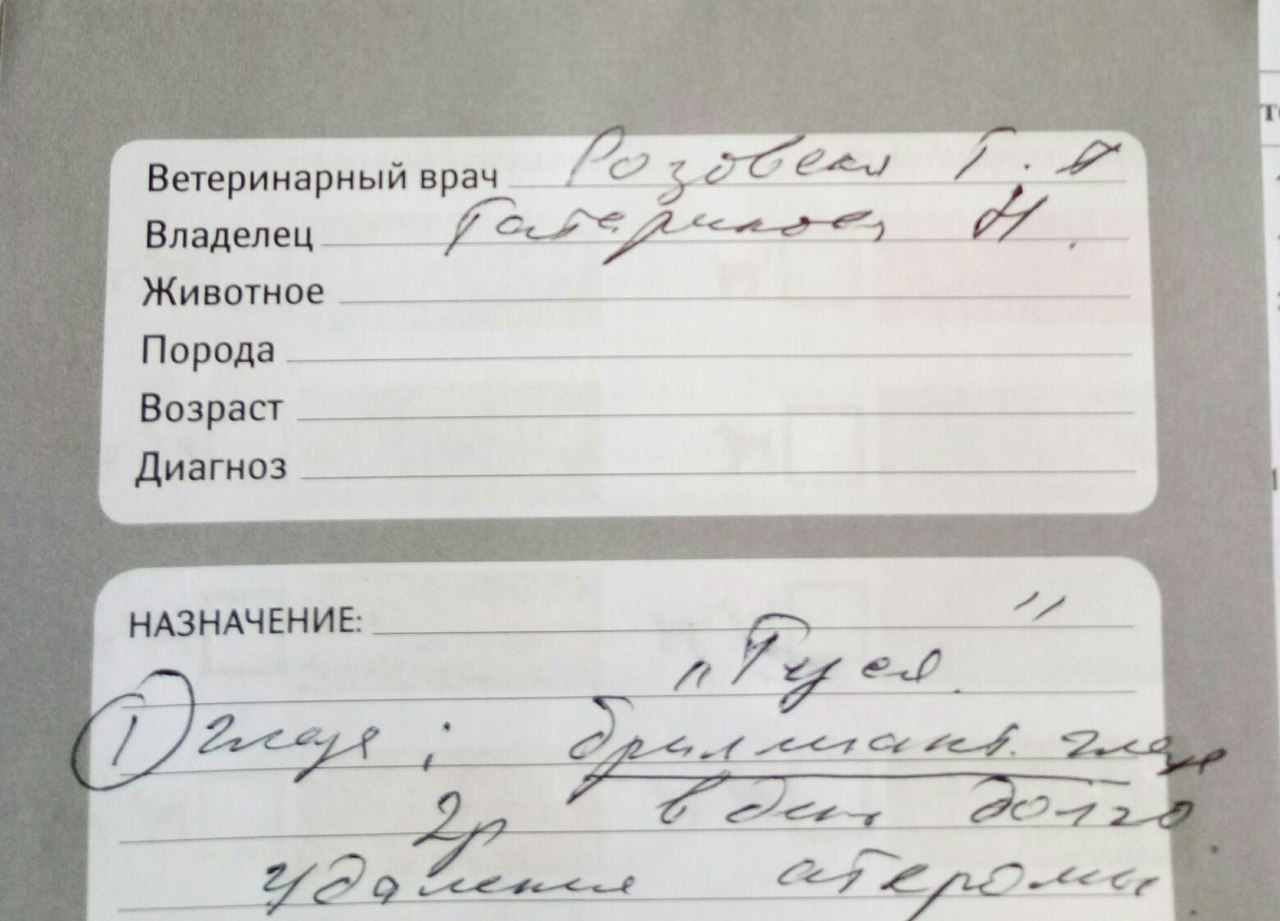 Ветеринарный врач Розовская Г. А
Владелец Татаринова Н.
Животное
Порода
Возраст
Диагноз
НАЗНАЧЕНИЕ:
„Гуся"
1 глаза ; бриллиант. глаза
2р в день долго
удаление атеромы